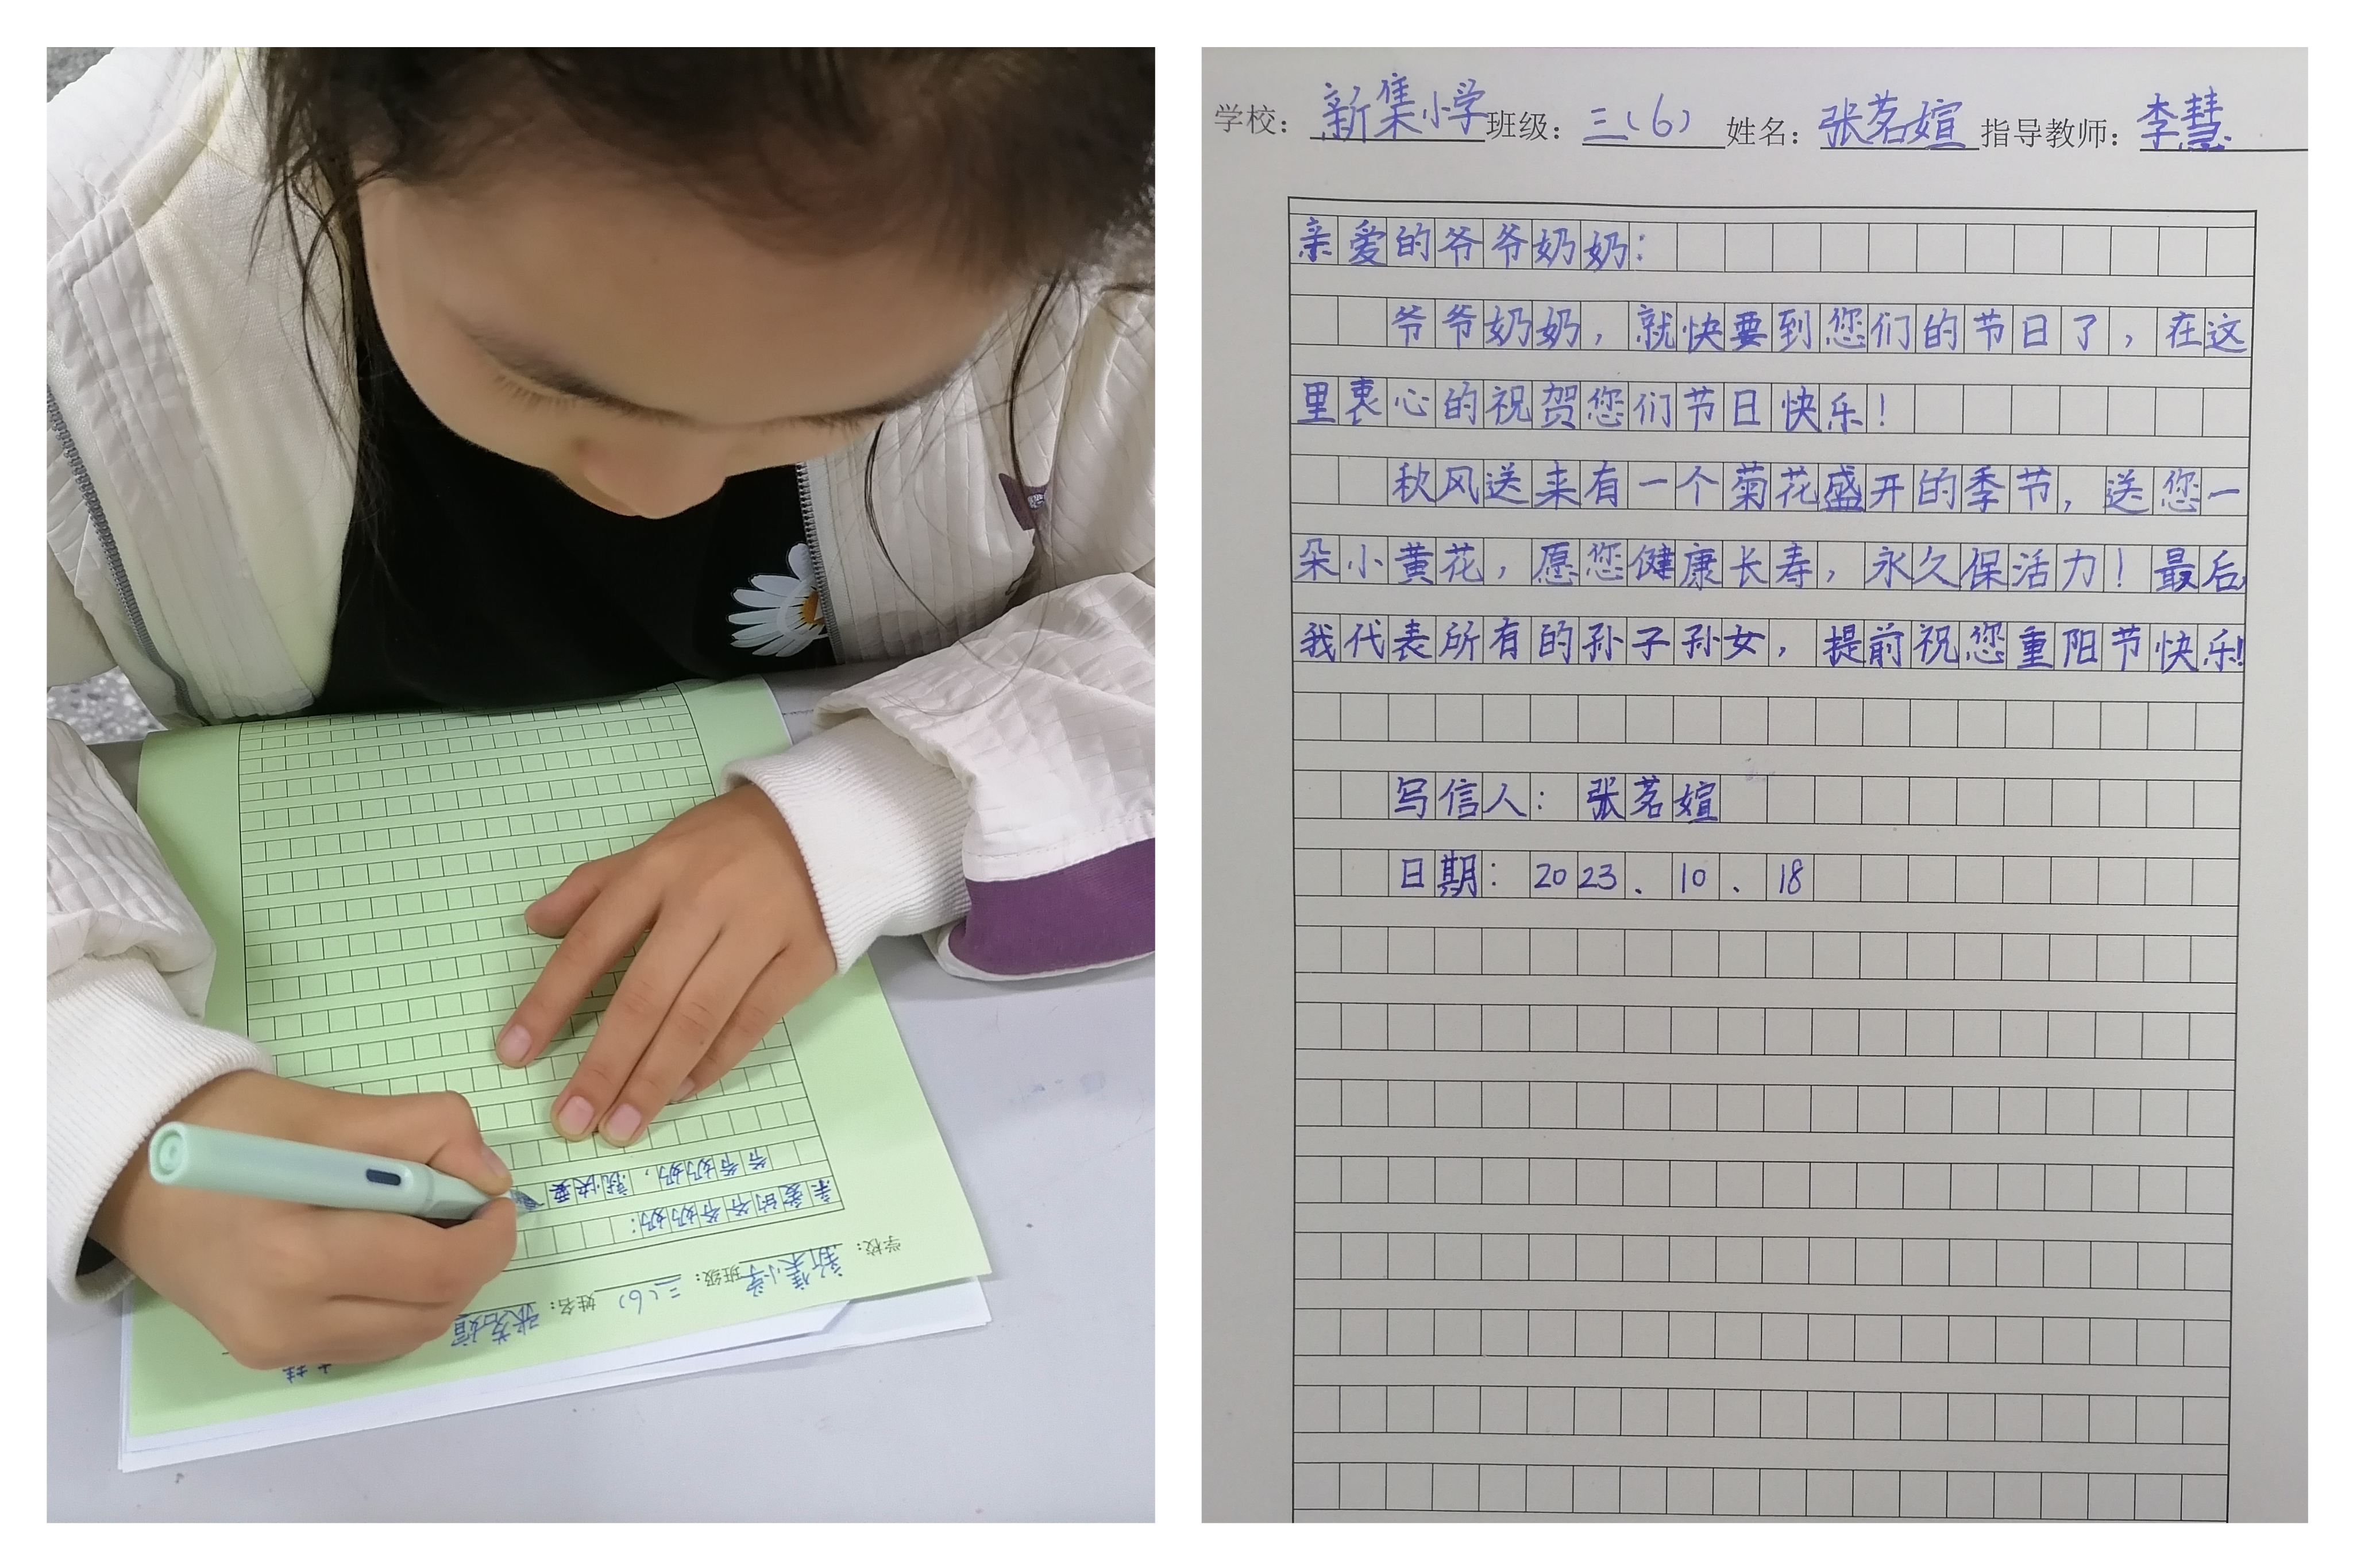 亲爱的爷爷奶奶：
爷爷奶奶，就快要
学校：新集小学 班级：三（6） 姓名：张茗媗
学校：新集小学 班级：三（6） 姓名：张茗媗 指导教师：李慧
亲爱的爷爷奶奶：
爷爷奶奶，就快要到您们的节日了，在这
里衷心的祝贺您们节日快乐！
秋风送来有一个菊花盛开的季节，送您一
朵小黄花，愿您健康长寿，永久保活力！最后，
我代表所有的孙子孙女，提前祝您重阳节快乐！
写信人：张茗媗
日期：2023、10、18